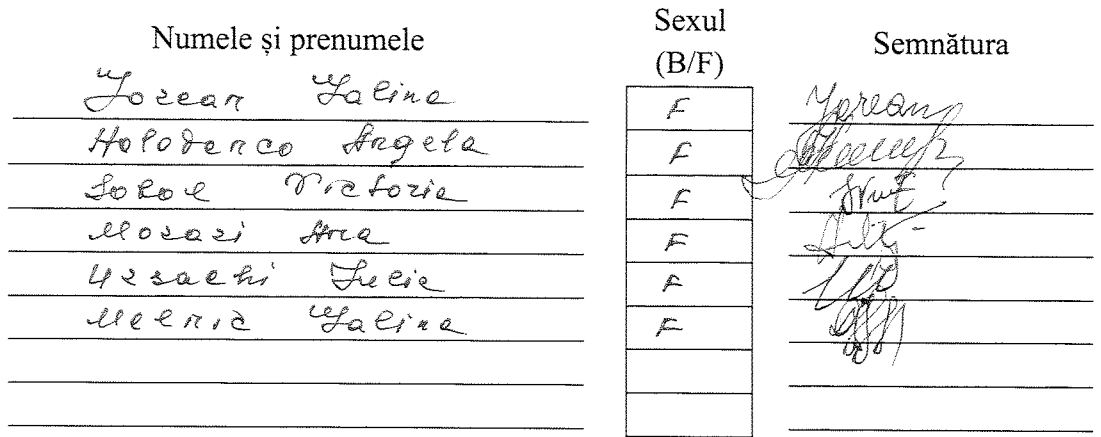 Numele și prenumele Sexul (B/F) Semnătura
Gorean Galina F
Holodenco Angela F
Sobol Victoria F
Morari Ana F
Ursachi Iulia F
Melnic Galina F